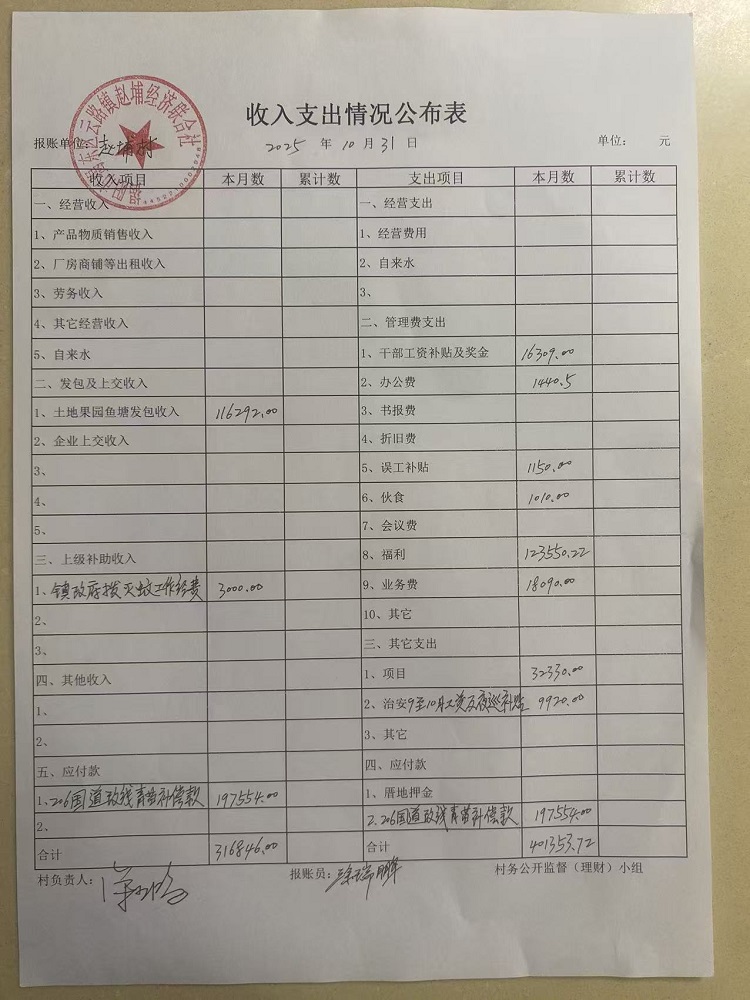 收入支出情况公布表
报账单位：赵埔村 2025 年 10 月 31 日 单位： 元
收入项目 本月数 累计数 支出项目 本月数 累计数
一、经营收入 一、经营支出
1、产品物质销售收入 1、经营费用
2、厂房商铺等出租收入 2、自来水
3、劳务收入 3、
4、其它经营收入 二、管理费支出
5、自来水 1、干部工资补贴及奖金 16309.00
二、发包及上交收入 2、办公费 1440.5
1、土地果园鱼塘发包收入 116292.00 3、书报费
2、企业上交收入 4、折旧费
3、 5、误工补贴 1150.00
4、 6、伙食 1010.00
5、 7、会议费
三、上级补助收入 8、福利 123550.22
1、镇政府拨灭蚊工作经费 3000.00 9、业务费 18090.00
2、 10、其它
3、 三、其它支出
四、其他收入 1、项目 32330.00
1、 2、治安9至10月工资及夜巡补贴 9920.00
2、 3、其它
五、应付款 四、应付款
1、206国道改线青苗补偿款 197554.00 1、厝地押金
2、 2、206国道改线青苗补偿款 197554.00
合计 316846.00 合计 401353.72
村负责人： 报账员： 村务公开监督（理财）小组
云路镇赵埔经济联合社